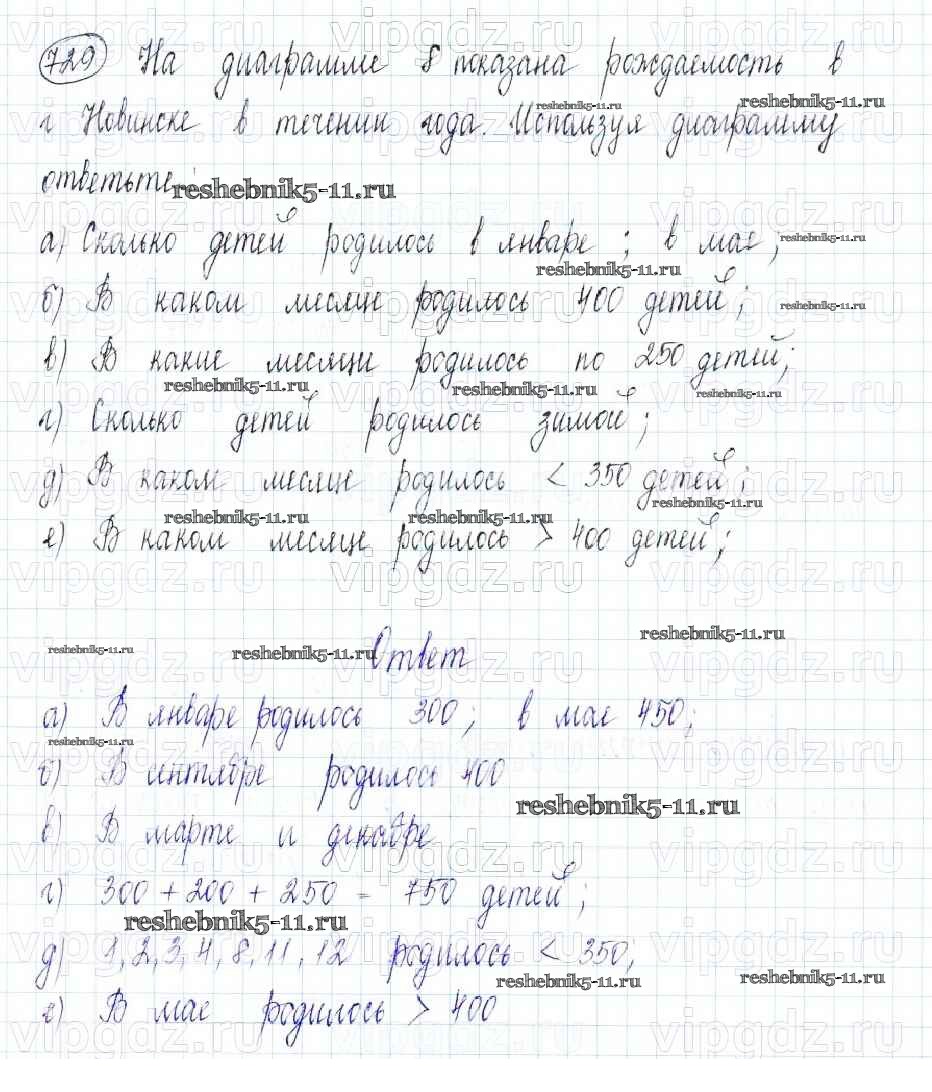 729 На диаграмме 8 показана рождаемость в
г Новинске в течении года. Используя диаграмму
ответьте:
а) Сколько детей родилось в январе; в мае;
б) В каком месяце родилось 400 детей;
в) В какие месяце родилось по 250 детей;
г) Сколько детей родилось зимой;
д) В каком месяце родилось < 350 детей;
е) В каком месяце родилось > 400 детей;
Ответ
а) В январе родилось 300; в мае 450;
б) В сентябре родилось 400
в) В марте и декабре
г) 300 + 200 + 250 = 750 детей;
д) 1, 2, 3, 4, 8, 11, 12 родилось < 350;
е) В мае родилось > 400
reshebnik5-11.ru
vipgdz.ru